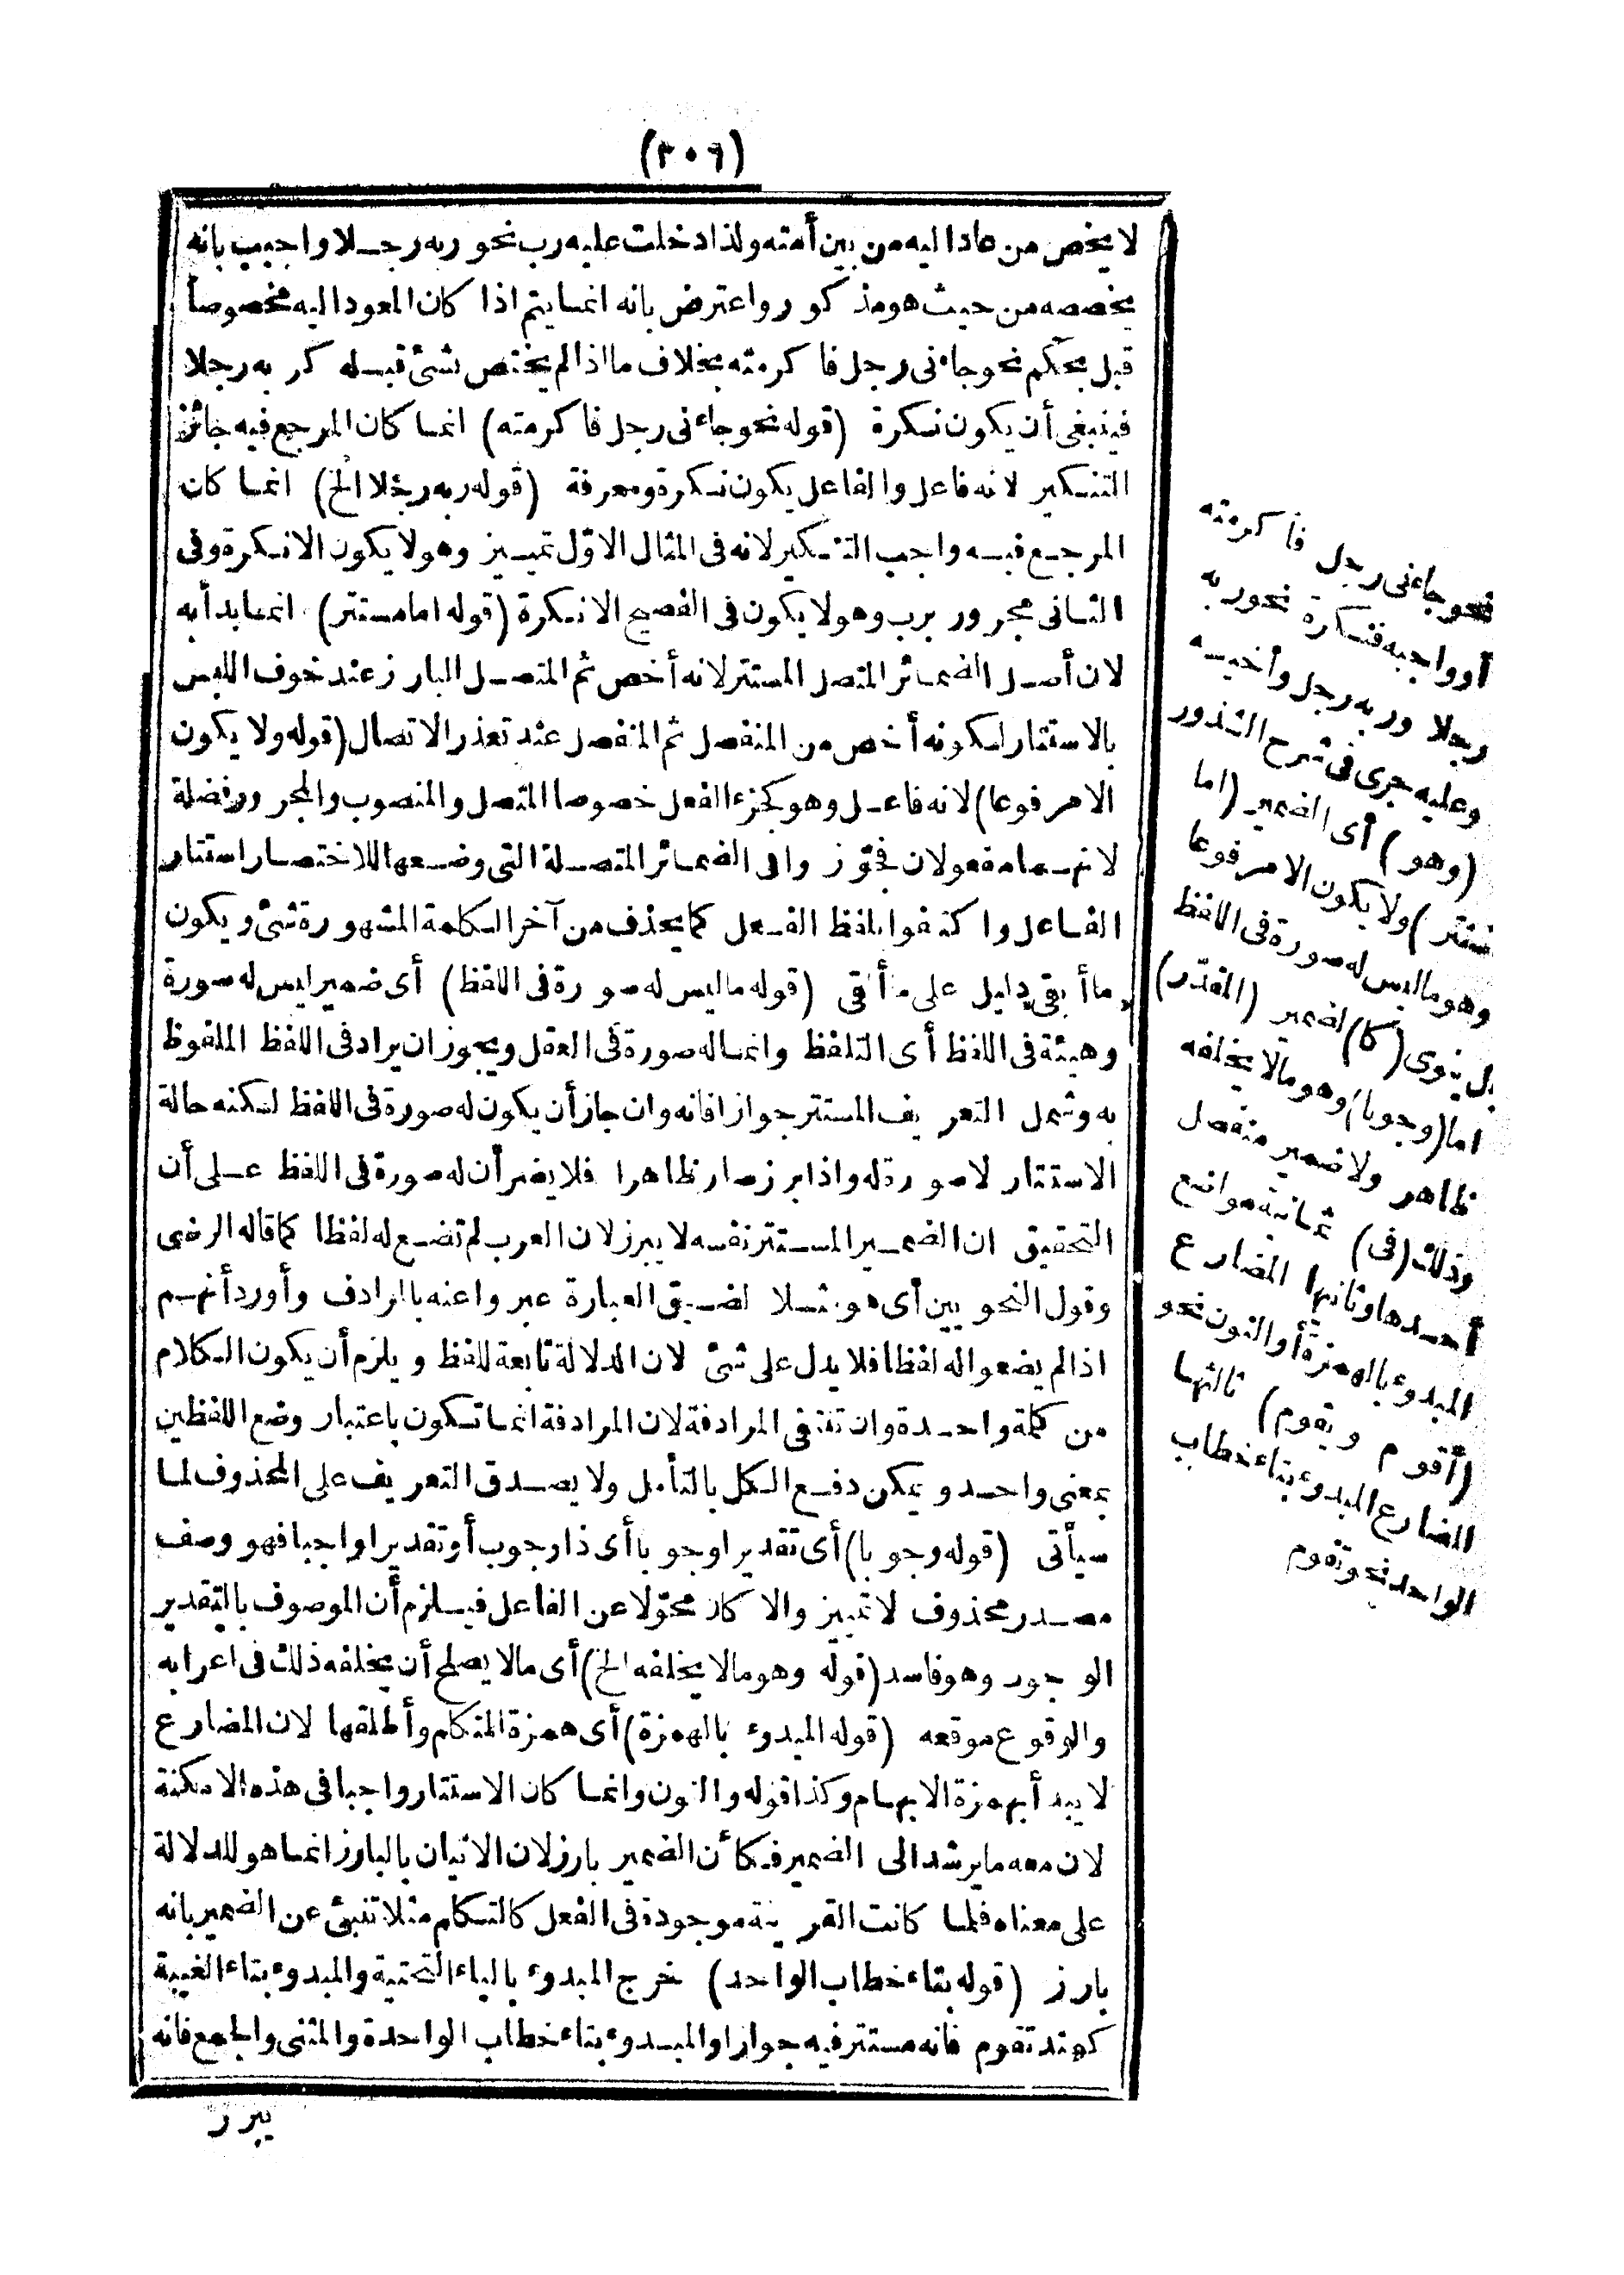 (٢٠٦)
لا يخص من عاد اليه من بين أمته ولذا دخلت عليه رب نحو ربه رجلا واجيب بانه
يخصصه من حيث هو مذكور واعترض بانه انما يتم اذا كان المعود اليه مخصوصا
قبل بحكم نحو جاءنى رجل فاكرمته بخلاف ما اذا لم يختص بشئ قبله كربه رجلا
فينبغى أن يكون نكرة (قوله نحو جاءنى رجل فاكرمته) انما كان المرجع فيه جائز
التنكير لانه فاعل والفاعل يكون نكرة ومعرفة (قوله ربه رجلا الخ) انما كان
المرجع فيه واجب التنكير لانه فى المثال الاوّل تمييز وهو لا يكون الا نكرة وفى
الثانى مجرور برب وهو لا يكون فى الفصيح الا نكرة (قوله اما مستتر) انما بدأ به
لان أصل الضمائر المتصل المستتر لانه أخص ثم المتصل البارز عند خوف اللبس
بالاستتار لكونه أخص من المنفصل ثم المنفصل عند تعذر الاتصال (قوله ولا يكون
الا مرفوعا) لانه فاعل وهو كجزء الفعل خصوصا المتصل والمنصوب والمجرور فضلة
لانهما مفعولان فجوّزوا فى الضمائر المتصلة التى وضعها للاختصار استتار
الفاعل واكتفوا بلفظ الفعل كما يحذف من آخر الكلمة المشهورة شئ ويكون
ما أبقى دليل على ما ألقى (قوله ما ليس له صورة فى اللفظ) أى ضمير ليس له صورة
وهيئة فى اللفظ أى التلفظ وانما له صورة فى العقل ويجوز ان يراد فى اللفظ الملفوظ
به وشمل التعريف المستتر جوازا فانه وان جاز أن يكون له صورة فى اللفظ لكنه حالة
الاستتار لا صورة له واذا برز صار ظاهرا فلا يضر أن له صورة فى اللفظ على أن
التحقيق ان الضمير المستتر نفسه لا يبرز لان العرب لم تضع له لفظا كما قاله الرضى
وقول النحويين أى هو مثلا لضيق العبارة عبروا عنه بالمرادف وأورد أنهم
اذا لم يضعوا له لفظا فلا يدل على شئ لان الدلالة تابعة للفظ ويلزم أن يكون الكلام
من كلمة واحدة وان تنتفى المرادفة لان المرادفة انما تكون باعتبار وضع اللفظين
بمعنى واحد ويمكن دفع الكل بالتأمل ولا يصدق التعريف على المحذوف لما
سيأتى (قوله وجوبا) أى تقديرا وجوبا أى ذا وجوب أو تقديرا واجبا فهو وصف
مصدر محذوف لا تمييز والا كان محوّلا عن الفاعل فيلزم أن الموصوف بالتقدير
الوجود وهو فاسد (قوله وهو ما لا يخلفه الخ) أى ما لا يصلح أن يخلفه ذلك فى اعرابه
والوقوع موقعه (قوله المبدوء بالهمزة) أى همزة المتكلم وأطلقها لان المضارع
لا يبدأ بهمزة الابهام وكذا قوله والنون وانما كان الاستتار واجبا فى هذه الامكنة
لان معه ما يرشد الى الضمير فكأن الضمير بارز لان الاتيان بالبارز انما هو للدلالة
على معناه فلما كانت القرينة موجودة فى الفعل كالتكلم مثلا تنبئ عن الضمير بانه
بارز (قوله بتاء خطاب الواحد) خرج المبدوء بالياء التحتية والمبدوء بتاء الغيبة
كهند تقوم فانه مستتر فيه جوازا والمبدوء بتاء خطاب الواحدة والمثنى والجمع فانه
يبرز
نحو جاءنى رجل فاكرمته
أو واجبه فنكرة نحو ربه
رجلا ورب رجل وأخيه
وعليه جرى فى شرح الشذور
(وهو) أى الضمير (اما
مستتر) ولا يكون الا مرفوعا
وهو ما ليس له صورة فى اللفظ
بل ينوى (كا) لضمير (المقدّر)
اما (وجوبا) وهو ما لا يخلفه
ظاهر ولا ضمير منفصل
وذلك (فى) ثمانية مواضع
أحدها وثانيها المضارع
المبدوء بالهمزة أو النون نحو
(أقوم ويقوم) ثالثها
المضارع المبدوء بتاء خطاب
الواحد نحو تقوم